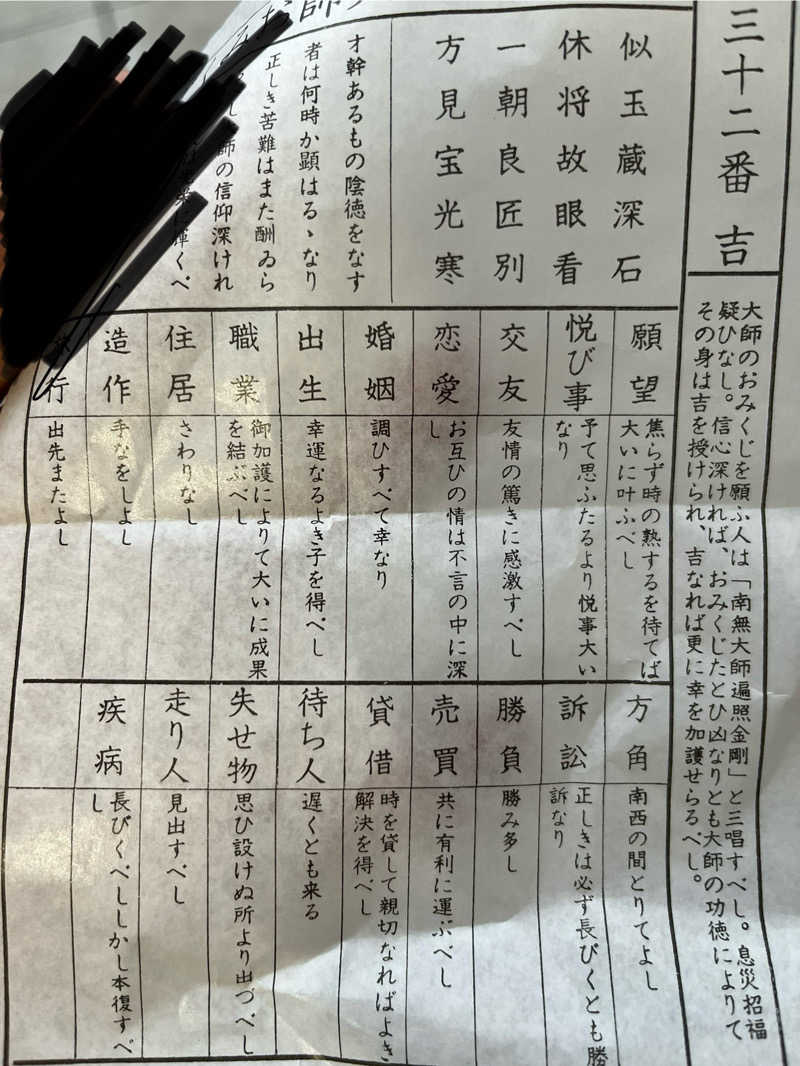 三十二番 吉
大師のおみくじを願ふ人は「南無大師遍照金剛」と三唱すべし。息災招福
疑ひなし。信心深ければ、おみくじたとひ凶なりとも大師の功徳によりて
その身は吉を授けられ、吉なれば更に幸を加護せらるべし。
師
似玉蔵深石
休将故眼看
一朝良匠別
方見宝光寒
才幹あるもの陰徳をなす
者は何時か顕はるゝなり
正しき苦難はまた酬ゐら
師の信仰深けれ
輝くべ
願望
焦らず時の熟するを待てば
大いに叶ふべし
悦び事
予て思ふたるより悦事大い
なり
交友
友情の篤きに感激すべし
恋愛
お互ひの情は不言の中に深
し
婚姻
調ひすべて幸なり
出生
幸運なるよき子を得べし
職業
御加護によりて大いに成果
を結ぶべし
住居
さわりなし
造作
手なをしよし
行
出先またよし
方角
南西の間とりてよし
訴訟
正しきは必ず長びくとも勝
訴なり
勝負
勝み多し
売買
共に有利に運ぶべし
貸借
時を貸して親切なればよき
解決を得べし
待ち人
遅くとも来る
失せ物
思ひ設けぬ所より出づべし
走り人
見出すべし
疾病
長びくべししかし本復すべ
し